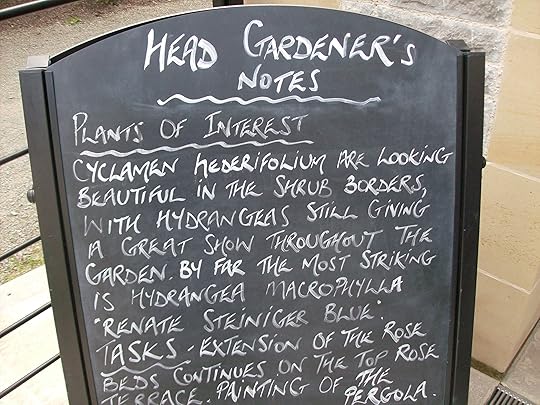 HEAD GARDENER'S
NOTES
PLANTS OF INTEREST
CYCLAMEN HEDERIFOLIUM ARE LOOKING
BEAUTIFUL IN THE SHRUB BORDERS,
WITH HYDRANGEAS STILL GIVING
A GREAT SHOW THROUGHOUT THE
GARDEN. BY FAR THE MOST STRIKING
IS HYDRANGEA MACROPHYLLA
'RENATE STEINIGER BLUE'.
TASKS - EXTENSION OF THE ROSE
BEDS CONTINUES ON THE TOP ROSE
TERRACE. PAINTING OF THE
PERGOLA.